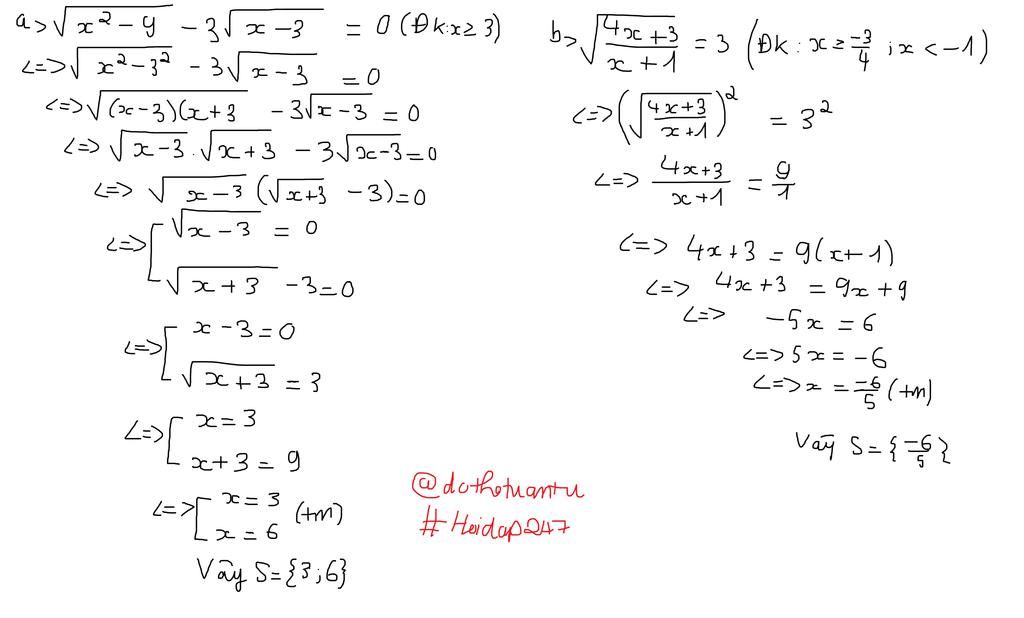 a> √(x² - 9) - 3√(x - 3) = 0 (Đk: x ≥ 3)
<=> √(x² - 3²) - 3√(x - 3) = 0
<=> √((x-3)(x+3) - 3√(x-3) = 0
<=> √(x-3) . √(x+3) - 3√(x-3) = 0
<=> √(x-3) (√(x+3) - 3) = 0
<=> [ √(x-3) = 0
√(x+3) - 3 = 0
<=> [ x - 3 = 0
√(x+3) = 3
<=> [ x = 3
x + 3 = 9
<=> [ x = 3
x = 6 (tm)
Vậy S = {3; 6}
b> √((4x+3)/(x+1)) = 3 (Đk: x ≥ -3/4 ; x < -1)
<=> (√((4x+3)/(x+1)))² = 3²
<=> (4x+3)/(x+1) = 9/1
<=> 4x+3 = 9(x+1)
<=> 4x+3 = 9x+9
<=> -5x = 6
<=> 5x = -6
<=> x = -6/5 (tm)
Vậy S = {-6/5}
@dothetuantu
#Hoidap247